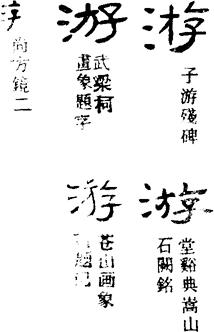 游
子游殘碑
游
武梁柯
畫象題字
尚方鏡二
游
堂谿典嵩山
石闕銘
游
蒼山画象